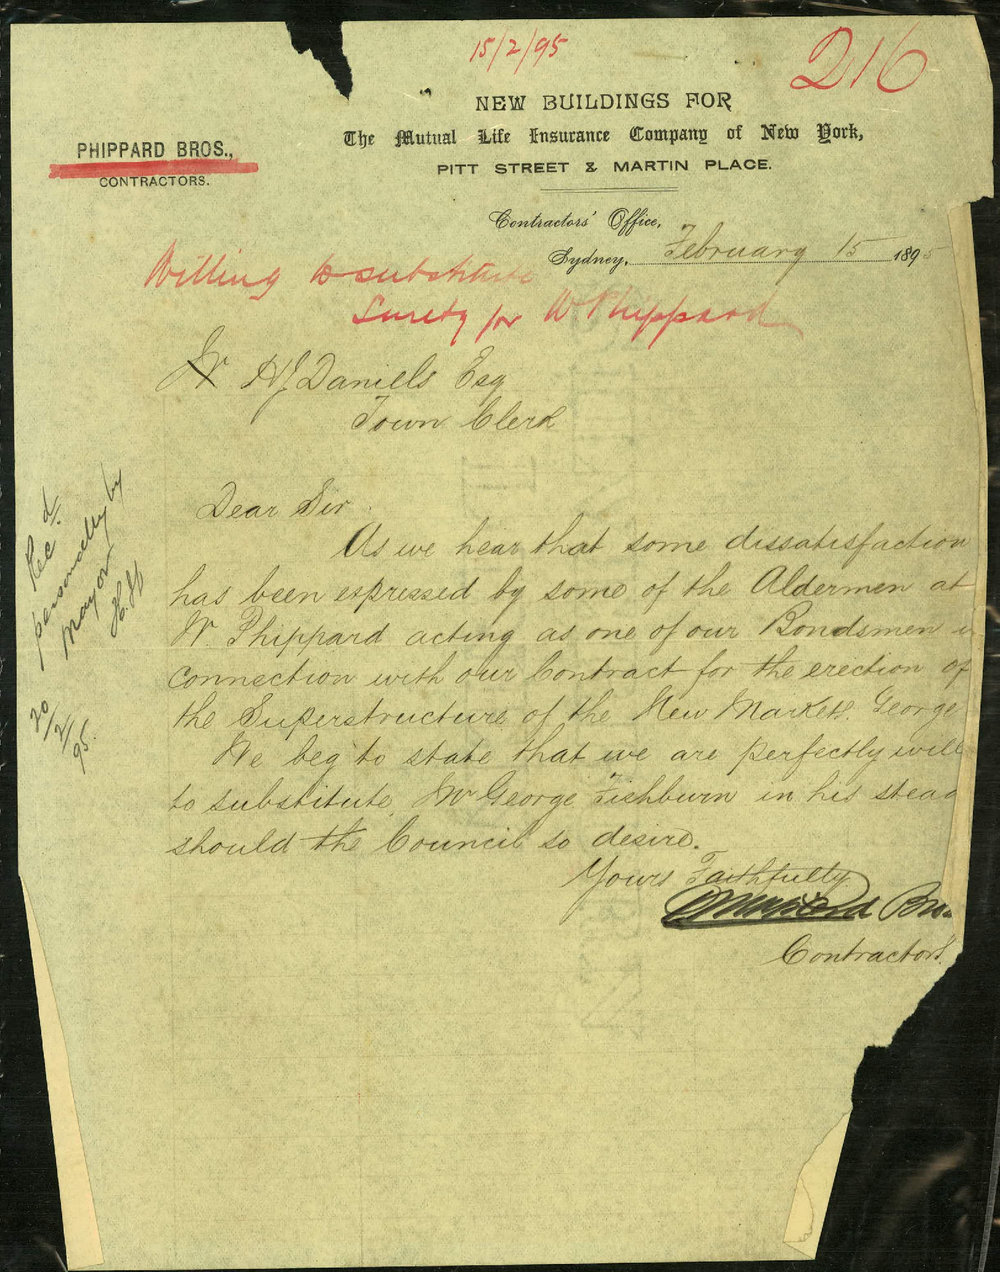 15/2/95
216
NEW BUILDINGS FOR
The Mutual Life Insurance Company of New York,
PITT STREET & MARTIN PLACE.
PHIPPARD BROS.,
CONTRACTORS.
Contractors' Office,
Sydney, February 15 1895
Willing to substitute
Surety for W Phippard
H J Daniels Esq
Town Clerk
Dear Sir
As we hear that some dissatisfaction
has been expressed by some of the Aldermen at
W. Phippard acting as one of our Bondsmen in
connection with our Contract for the erection of
the Superstructure of the New Markets. George
We beg to state that we are perfectly will
to substitute Mr George Fishburn in his stead
should the Council so desire.
Yours Faithfully
Phippard Bros
Contractors
Rec d
personally by
Mayor
20/2/95.